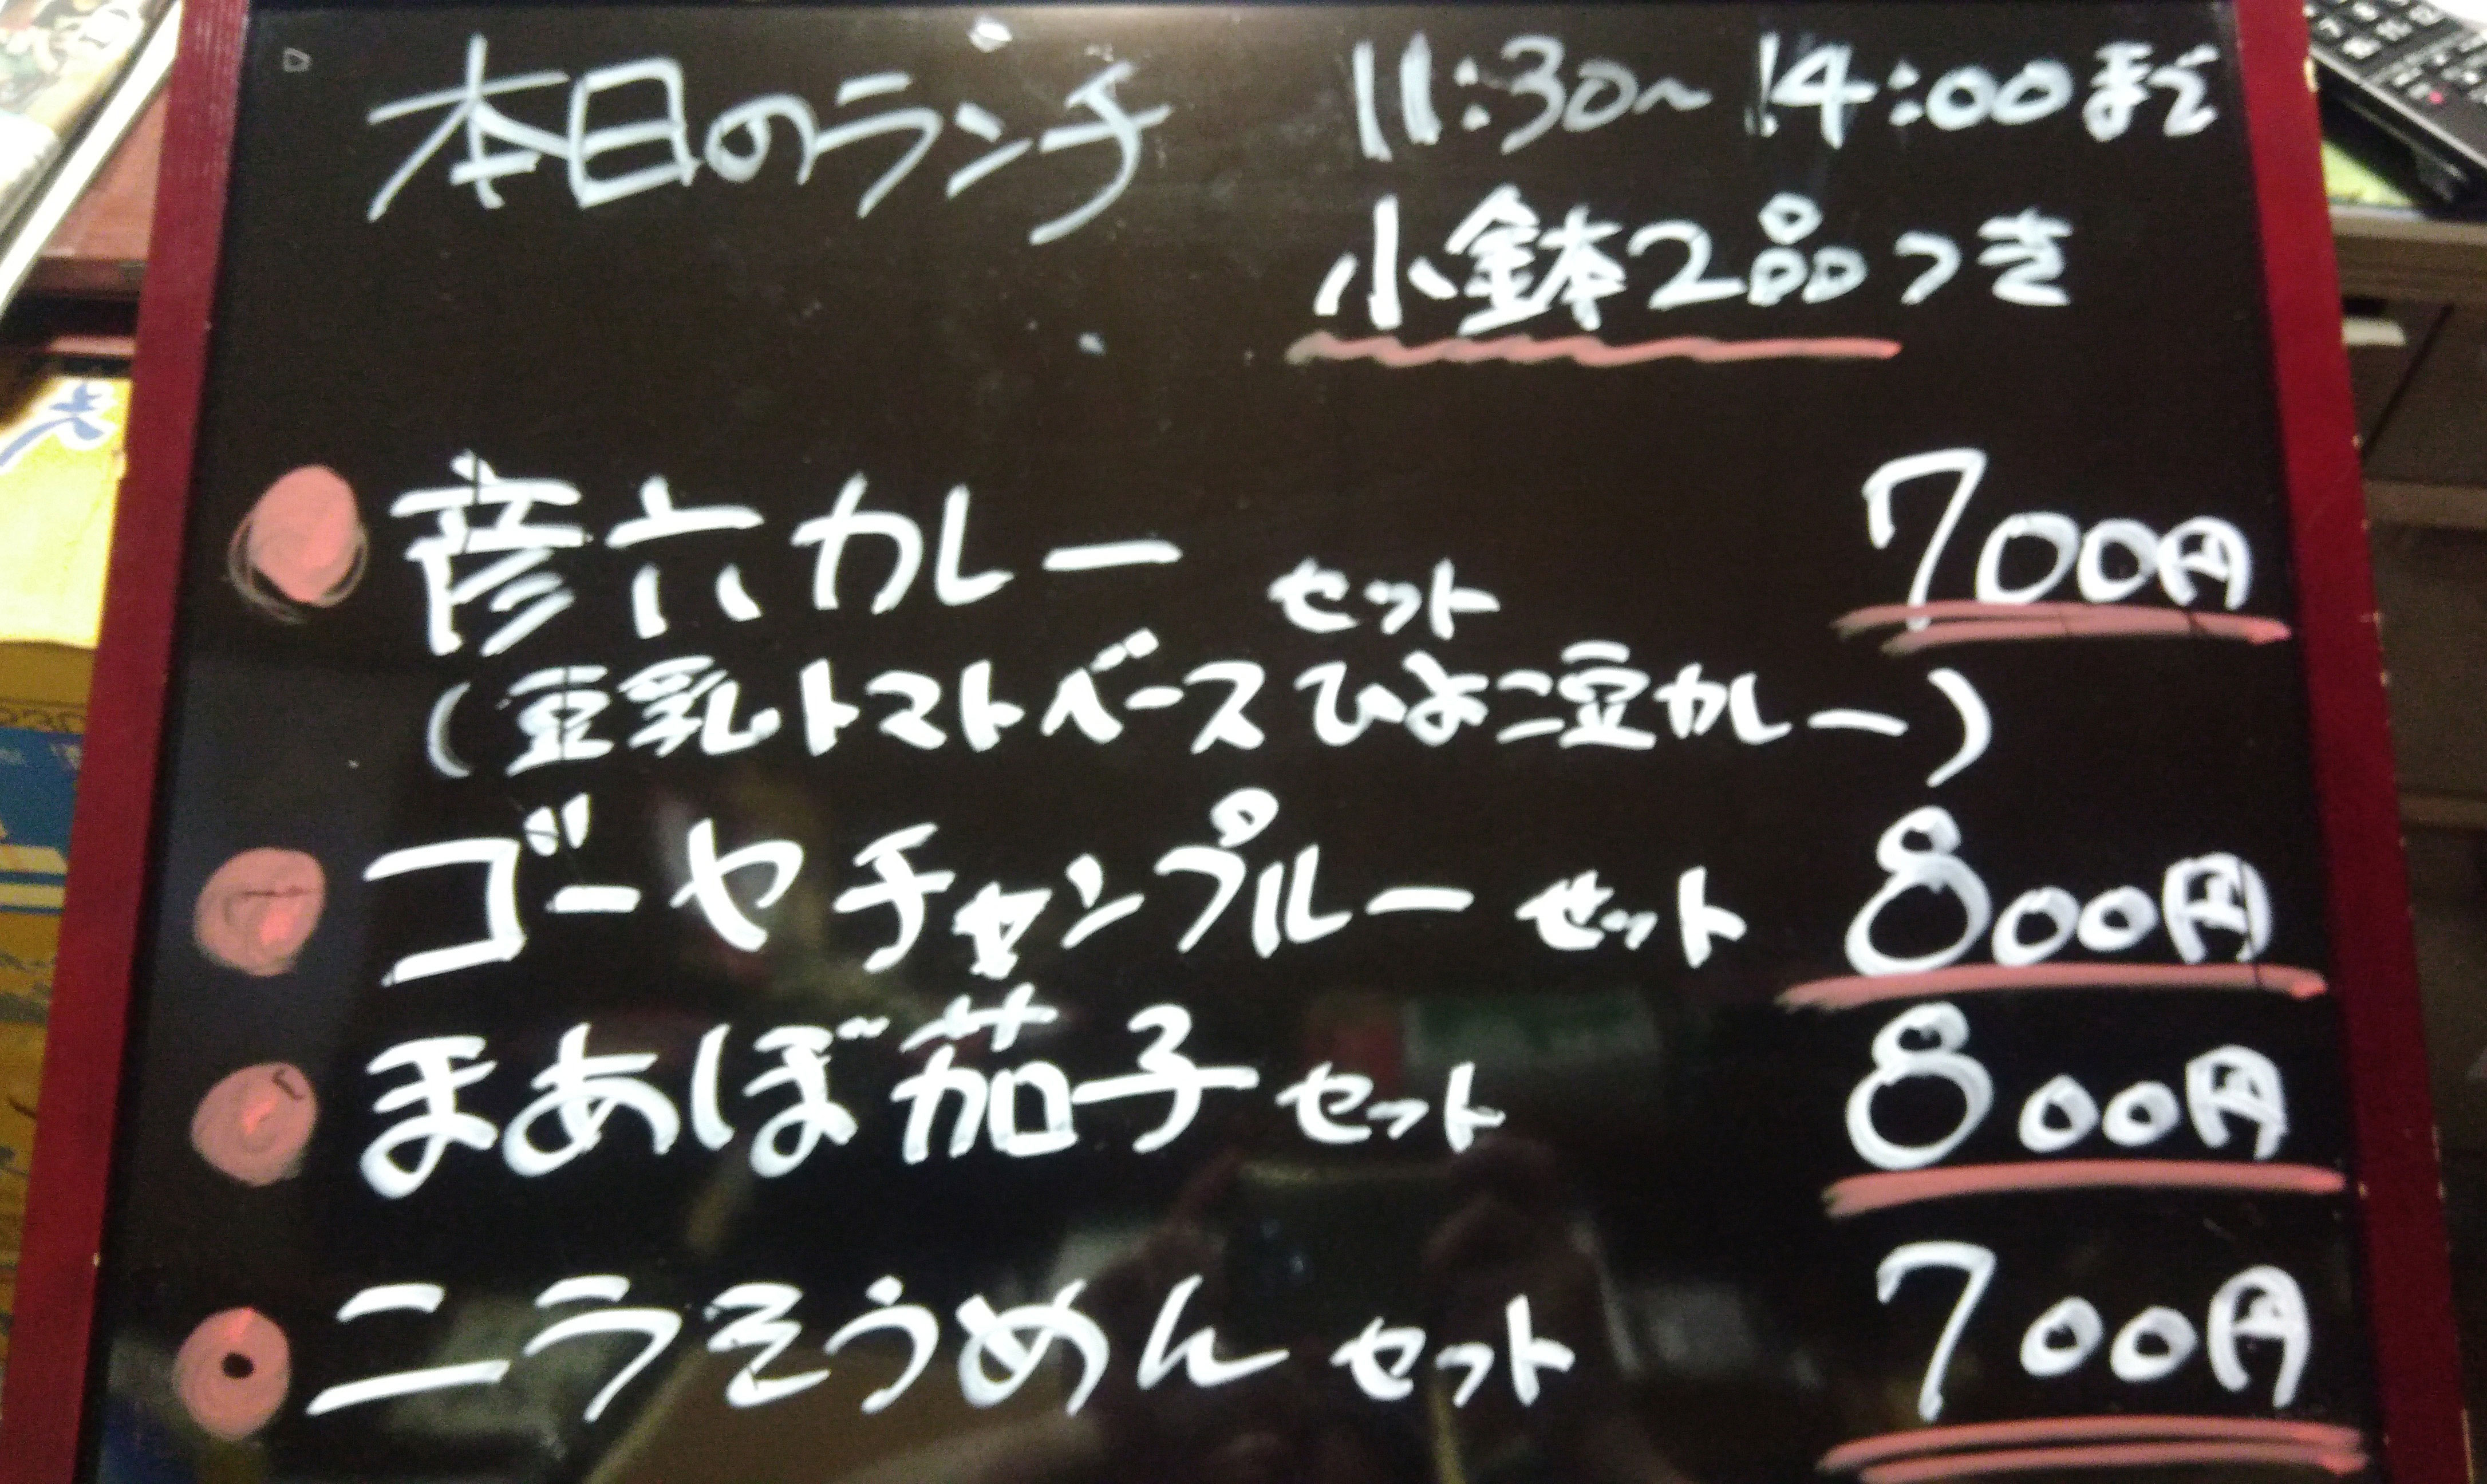 本日のランチ 11:30~14:00まで
小鉢2品つき
彦六カレー セット 700円
(豆乳トマトベースひよこ豆カレー)
ゴーヤチャンプルー セット 800円
まあぼ茄子セット 800円
ニラそうめん セット 700円